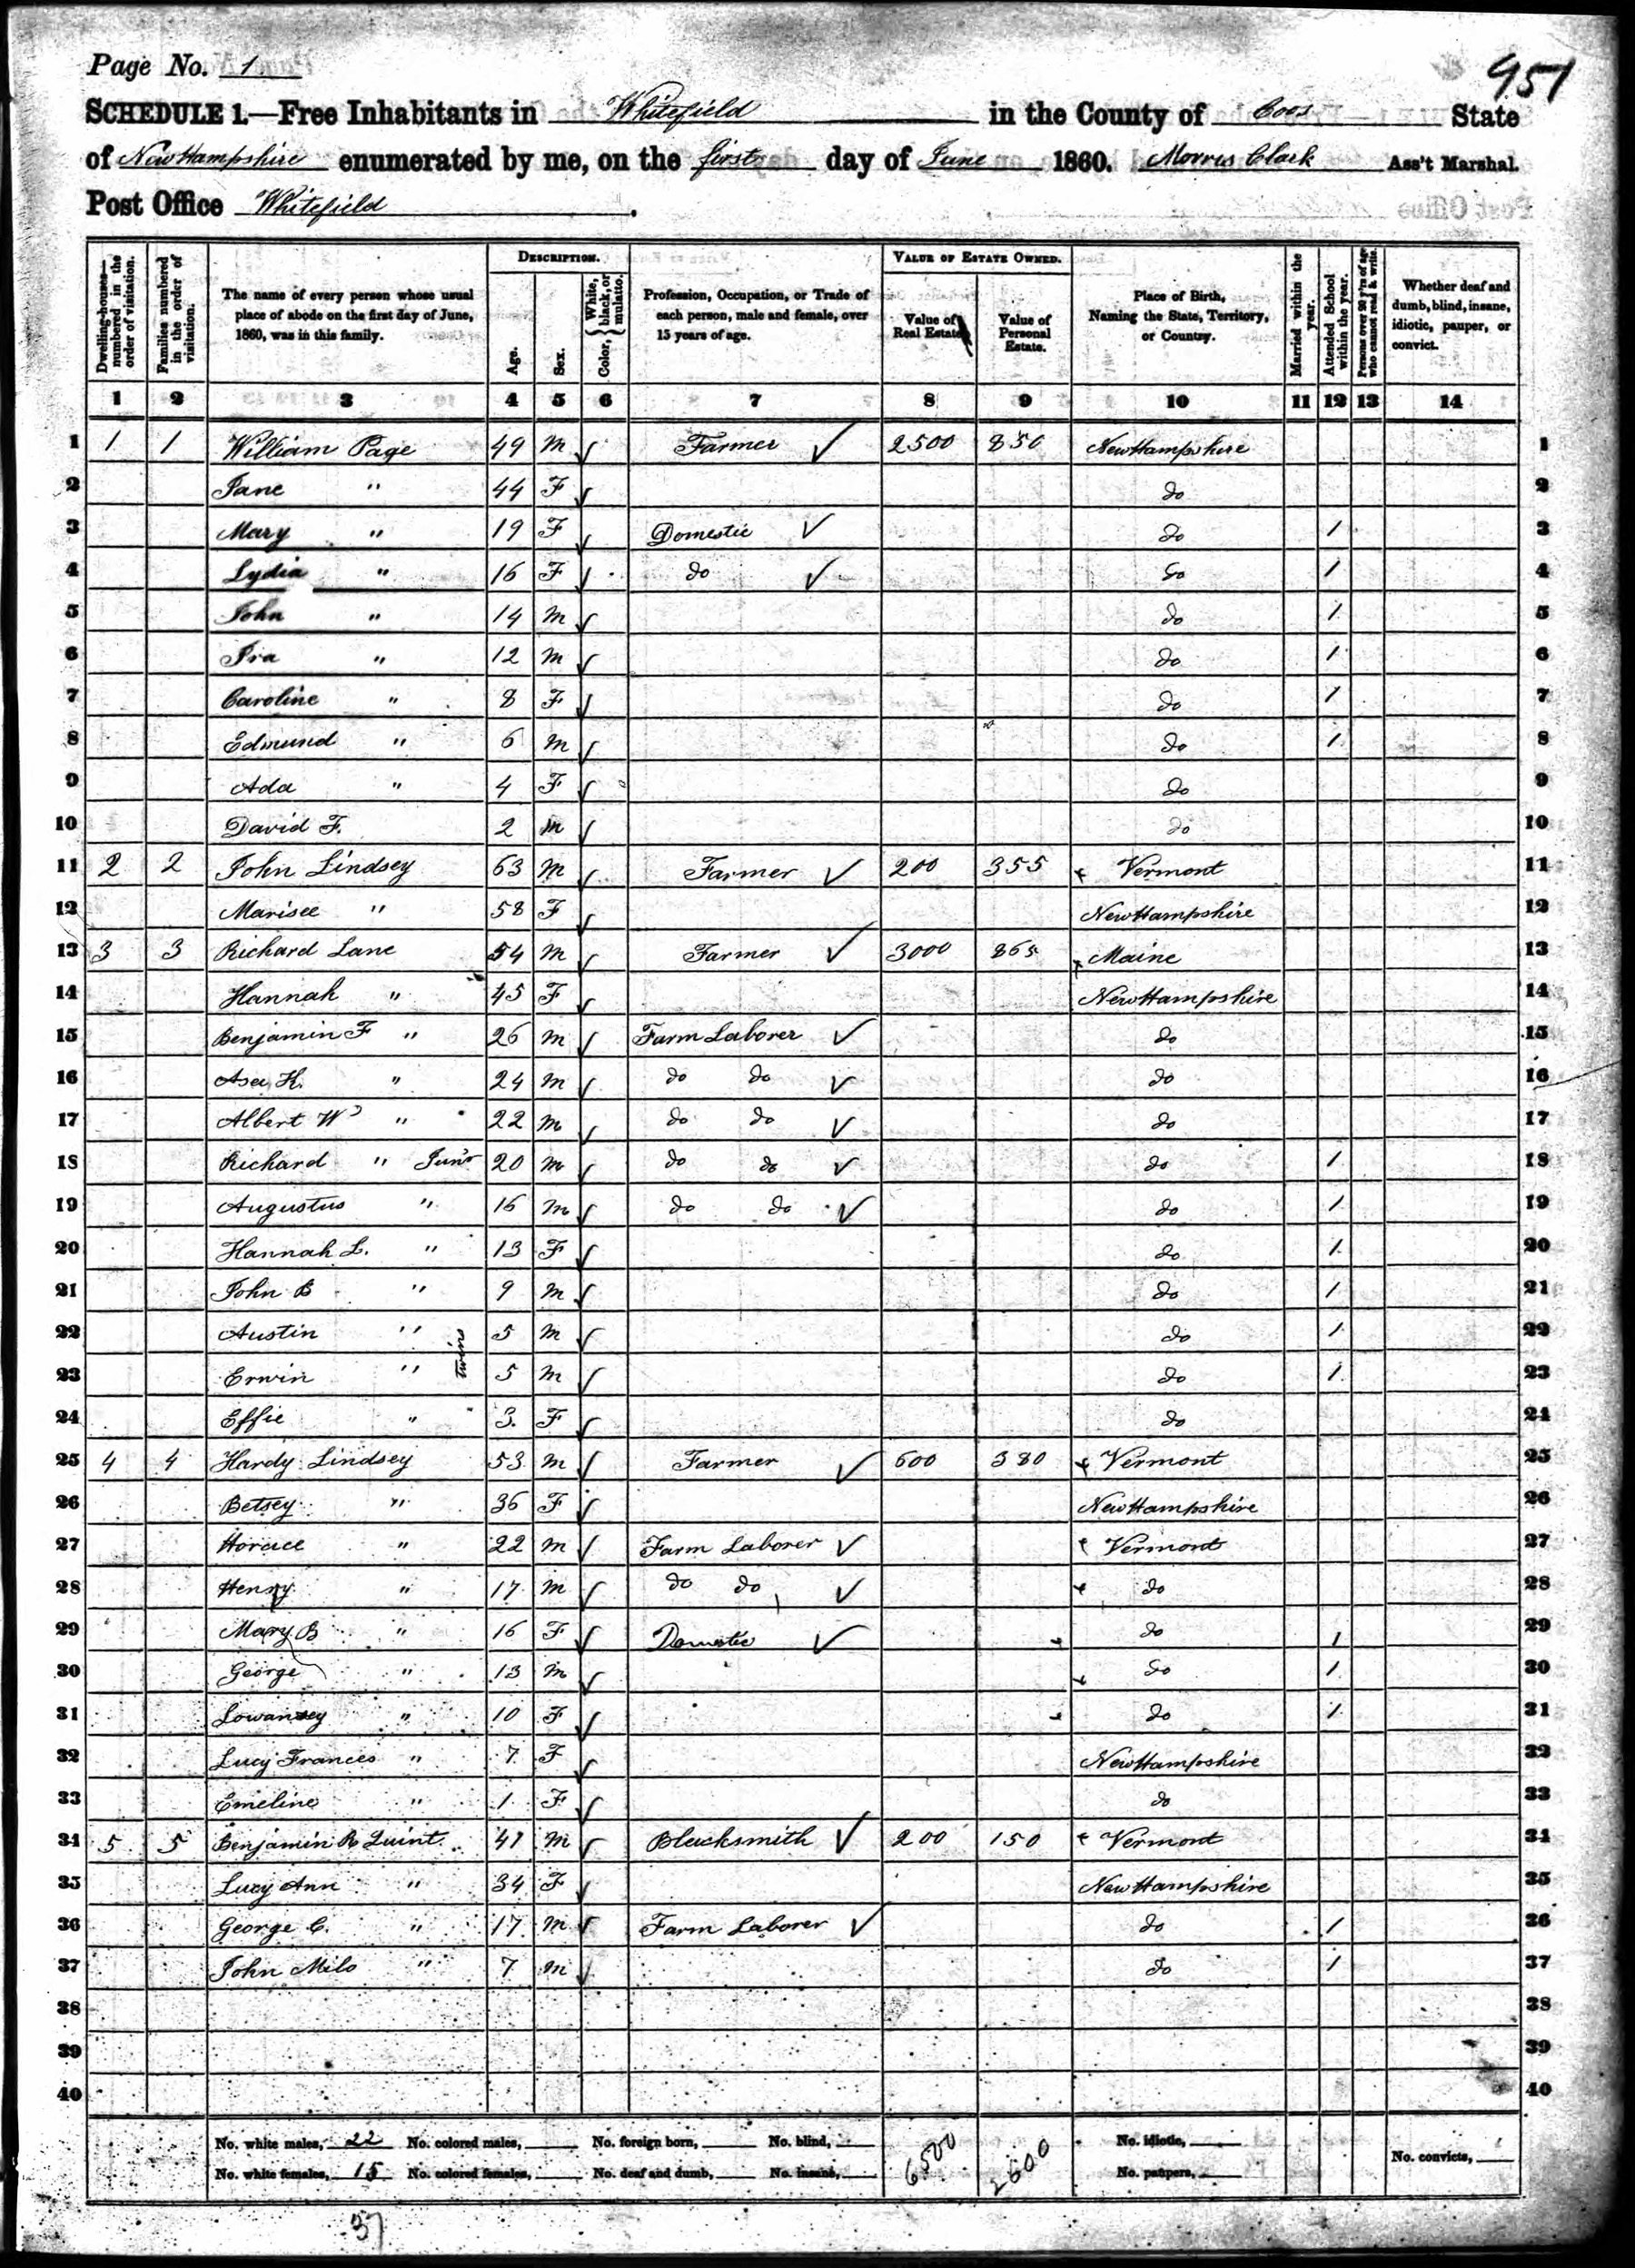 Page No. 1
951
SCHEDULE 1.—Free Inhabitants in Whitefield in the County of Coos State
of New Hampshire enumerated by me, on the first day of June 1860. Morris Clark Ass't Marshal.
Post Office Whitefield.
Dwelling-houses—numbered in the order of visitation.
Families numbered in the order of visitation.
The name of every person whose usual place of abode on the first day of June, 1860, was in this family.
DESCRIPTION.
Age.
Sex.
Color, { White, black, or mulatto.
Profession, Occupation, or Trade of each person, male and female, over 15 years of age.
VALUE OF ESTATE OWNED.
Value of Real Estate
Value of Personal Estate.
Place of Birth, Naming the State, Territory, or Country.
Married within the year.
Attended School within the year.
Persons over 20 y'rs of age who cannot read & write.
Whether deaf and dumb, blind, insane, idiotic, pauper, or convict.
1 2 3 4 5 6 7 8 9 10 11 12 13 14
1 1 1 William Page 49 M ✓ Farmer ✓ 2500 850 New Hampshire 1
2 Jane " 44 F ✓ do 2
3 Mary " 19 F ✓ Domestic ✓ do 1 3
4 Lydia " 16 F ✓ do ✓ do 1 4
5 John " 14 M ✓ do 1 5
6 Ira " 12 M ✓ do 1 6
7 Caroline " 8 F ✓ do 1 7
8 Edmund " 6 M ✓ do 1 8
9 Ada " 4 F ✓ do 9
10 David F. 2 M ✓ do 10
11 2 2 John Lindsey 63 M ✓ Farmer ✓ 200 355 Vermont 11
12 Marisee " 58 F ✓ New Hampshire 12
13 3 3 Richard Lane 54 M ✓ Farmer ✓ 3000 865 Maine 13
14 Hannah " 45 F ✓ New Hampshire 14
15 Benjamin F " 26 M ✓ Farm Laborer ✓ do 15
16 Asa K. " 24 M ✓ do do ✓ do 16
17 Albert W " 22 M ✓ do do ✓ do 17
18 Richard " Junr 20 M ✓ do do ✓ do 1 18
19 Augustus " 16 M ✓ do do ✓ do 1 19
20 Hannah L. " 13 F ✓ do 1 20
21 John B " 9 M ✓ do 1 21
22 Austin " twins 5 M ✓ do 1 22
23 Erwin " 5 M ✓ do 1 23
24 Effie " 3 F ✓ do 24
25 4 4 Hardy Lindsey 53 M ✓ Farmer ✓ 600 380 Vermont 25
26 Betsey " 36 F ✓ New Hampshire 26
27 Horace " 22 M ✓ Farm Laborer ✓ Vermont 27
28 Henry " 17 M ✓ do do ✓ do 28
29 Mary B " 16 F ✓ Domestic ✓ do 1 29
30 George " 13 M ✓ do 1 30
31 " 10 F ✓ do 1 31
32 Lucy Frances " 7 F ✓ New Hampshire 32
33 Emeline " 1 F ✓ do 33
34 5 5 Benjamin R Quint 47 M ✓ Blacksmith ✓ 200 150 Vermont 34
35 Lucy Ann " 34 F ✓ New Hampshire 35
36 George C. " 17 M ✓ Farm Laborer ✓ do 1 36
37 John Milo " 7 M ✓ do 1 37
38 38
39 39
40 40
No. white males, 22 No. colored males, No. foreign born, No. blind, 6500 2600 No. idiotic,
No. white females, 15 No. colored females, No. deaf and dumb, No. insane, No. paupers, No. convicts,
37